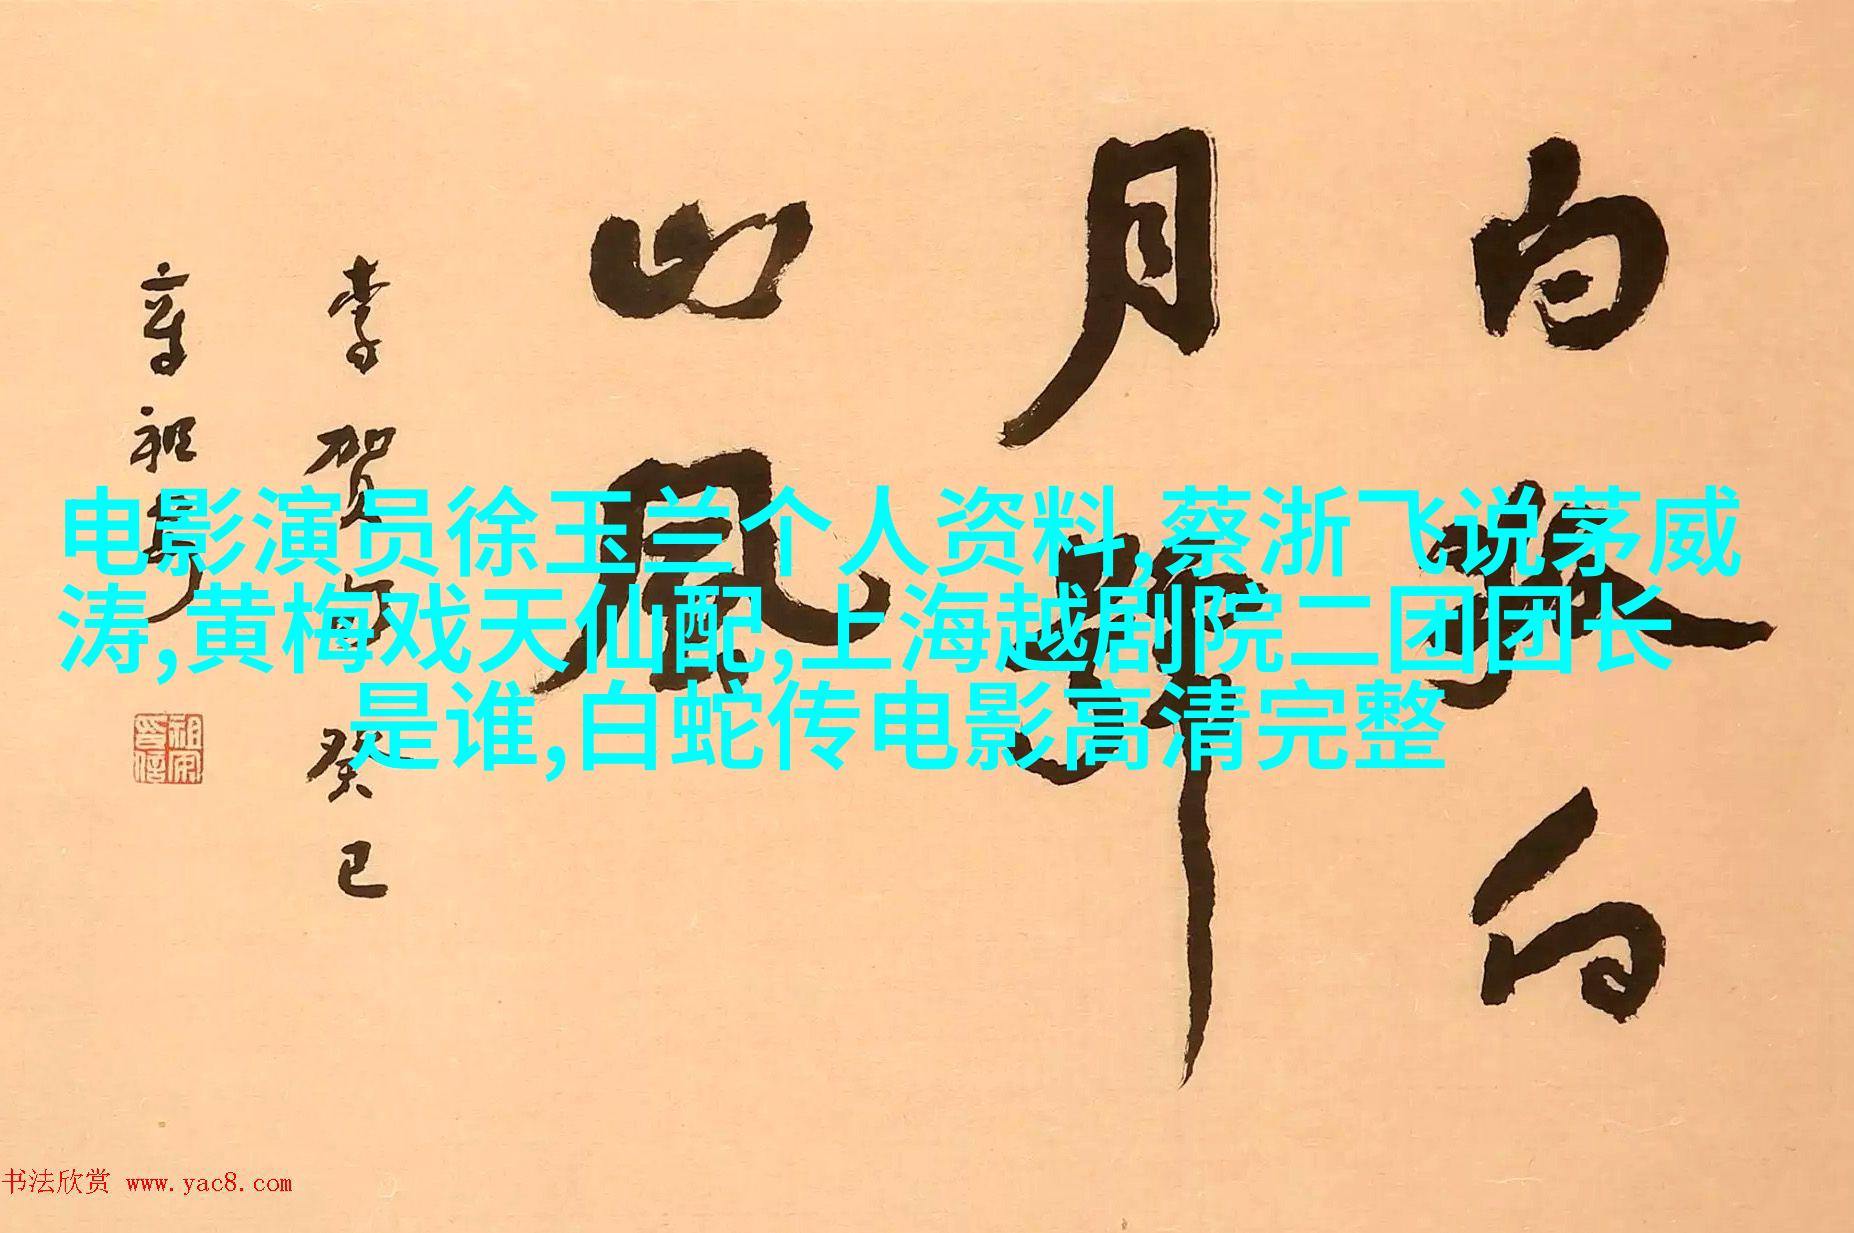 白狐向
月號
山風
李贺句 癸巳
章祖安
祖安印信
电影演员徐玉兰个人资料,蔡浙飞说茅威
涛,黄梅戏天仙配,上海越剧院二团团长
是谁,白蛇传电影高清完整
书法欣赏 www.yac8.com